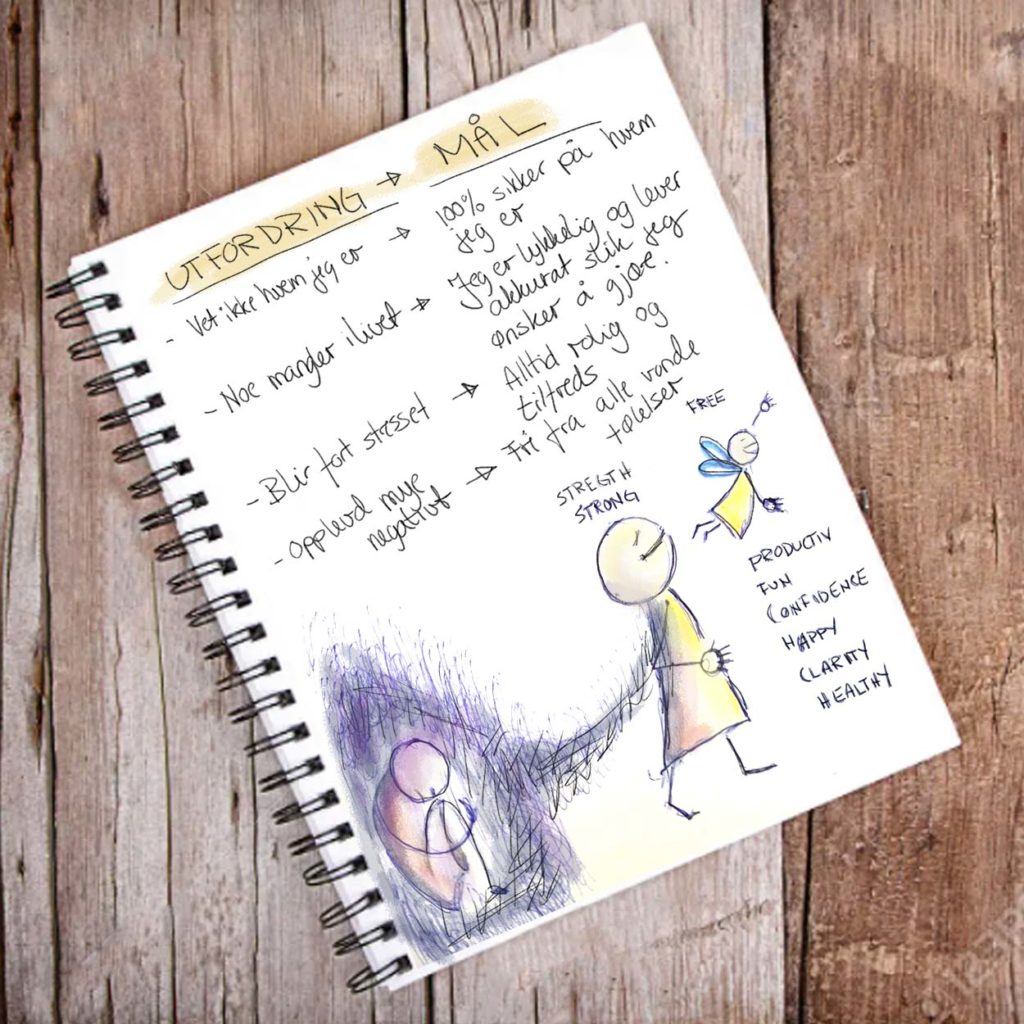 UTFORDRING → MÅL
- Vet ikke hvem jeg er → 100% sikker på hvem
jeg er
- Noe mangler i livet → Jeg er lykkelig og lever
akkurat slik jeg
ønsker å gjøe.
- Blir fort stresset → Alltid rolig og
tilfreds
- opplevd mye
negativt → Fri fra alle vonde
følelser
FREE
STREGTH
STRONG
PRODUCTIV
FUN
CONFIDENCE
HAPPY
CLARITY
HEALTHY